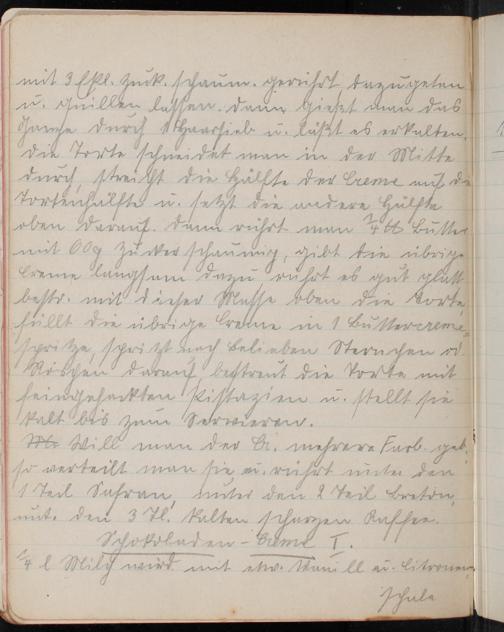 mit 3 Eßl. Zuck. schaum. gerührt, dazugetan
u. quillen lassen. Dann gießt man das
Ganze durch 1 Haarsieb u. läßt es erkalten.
Die Torte schneidet man in der Mitte
durch, streicht die Hälfte der Creme auf die
Tortenhälfte u. setzt die andere Hälfte
oben darauf. Dann rührt man 1/4 ℔ Butter
mit 60g Zucker schaumig, gibt die übrige
Creme langsam dazu rührt es gut glatt
bestr. mit dieser Masse oben die Torte,
füllt die übrige Creme in 1 Buttercreme-
spritze, spritzt nach belieben Sternchen od
Röschen darauf bestreut die Torte mit
feingehackten Pistazien u. stellt sie
kalt bis zum Servieren.
Will man der Cr. mehrere Farb. geb.
so verteilt man sie u. rührt unter den
1 Teil Safran, unter den 2 Teil Breton,
unt. den 3 Tl. kalten schwarzen Kaffee.
Schokoladen-Creme I.
1/4 l Milch wird mit etw. Vanill u. Citronen-
schale